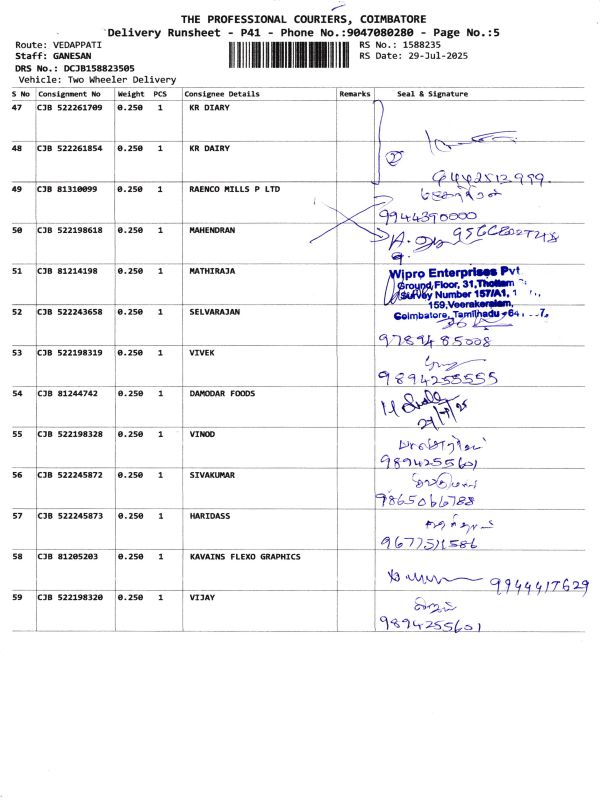 THE PROFESSIONAL COURIERS, COIMBATORE
Delivery Runsheet - P41 - Phone No.:9047080280 - Page No.:5
Route: VEDAPPATI RS No.: 1588235
Staff: GANESAN RS Date: 29-Jul-2025
DRS No.: DCJB158823505
Vehicle: Two Wheeler Delivery
S No Consignment No Weight PCS Consignee Details Remarks Seal & Signature
47 CJB 522261709 0.250 1 KR DIARY
48 CJB 522261854 0.250 1 KR DAIRY
②
9442512999.
49 CJB 81310099 0.250 1 RAENCO MILLS P LTD
9944390000
50 CJB 522198618 0.250 1 MAHENDRAN
51 CJB 81214198 0.250 1 MATHIRAJA
Wipro Enterprises Pvt
Ground Floor, 31, Thottam
Survey Number 157/A1,
159, Veerakeralam,
Coimbatore, Tamilnadu
52 CJB 522243658 0.250 1 SELVARAJAN
9789485008
53 CJB 522198319 0.250 1 VIVEK
9894255555
54 CJB 81244742 0.250 1 DAMODAR FOODS
55 CJB 522198328 0.250 1 VINOD
9894255601
56 CJB 522245872 0.250 1 SIVAKUMAR
9865066788
57 CJB 522245873 0.250 1 HARIDASS
9677511586
58 CJB 81205203 0.250 1 KAVAINS FLEXO GRAPHICS
9944417629
59 CJB 522198320 0.250 1 VIJAY
9894255601